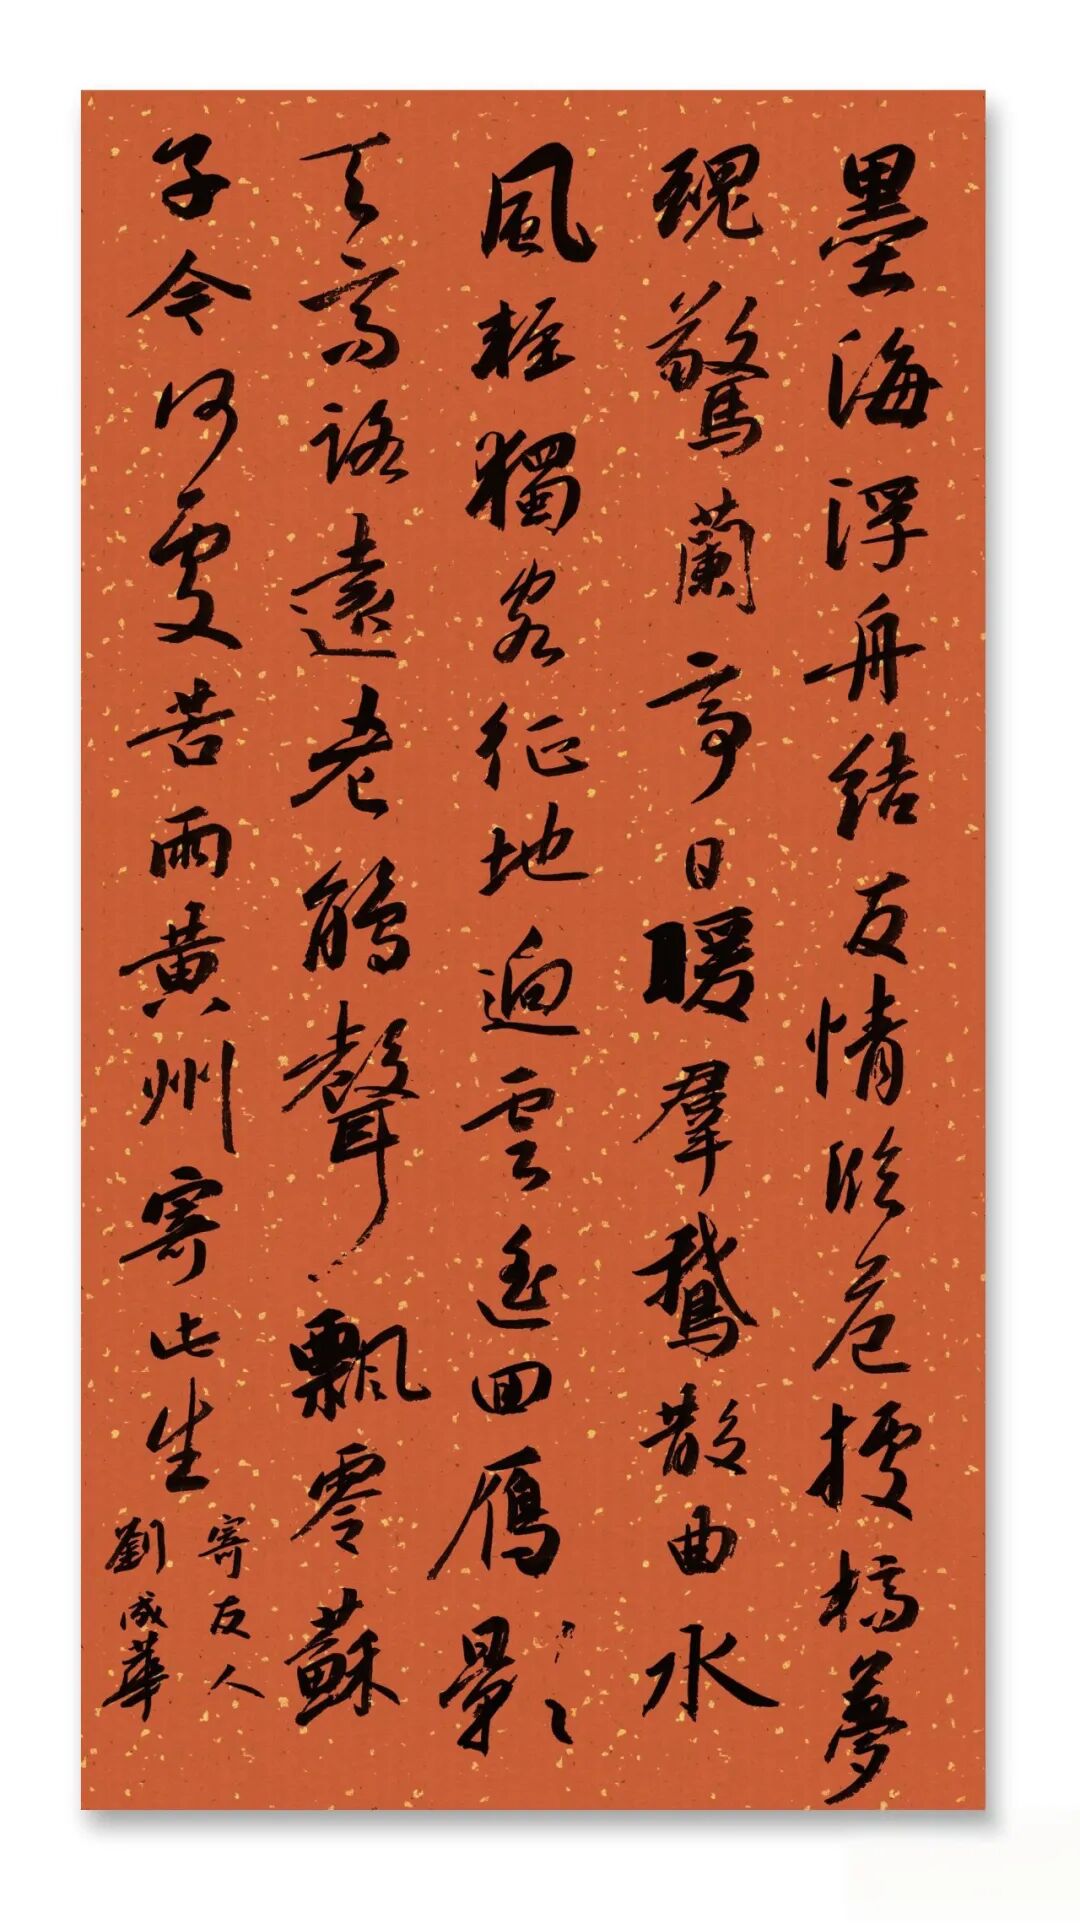 墨海浮舟結友情危夢
魂驚蘭亭日暖羣鵝散曲水
風輕獨客征地迥雲遙回雁影
天高路遠老聲飄零蘇
子今何處苦雨黃州寄此生
寄友人
劉成華